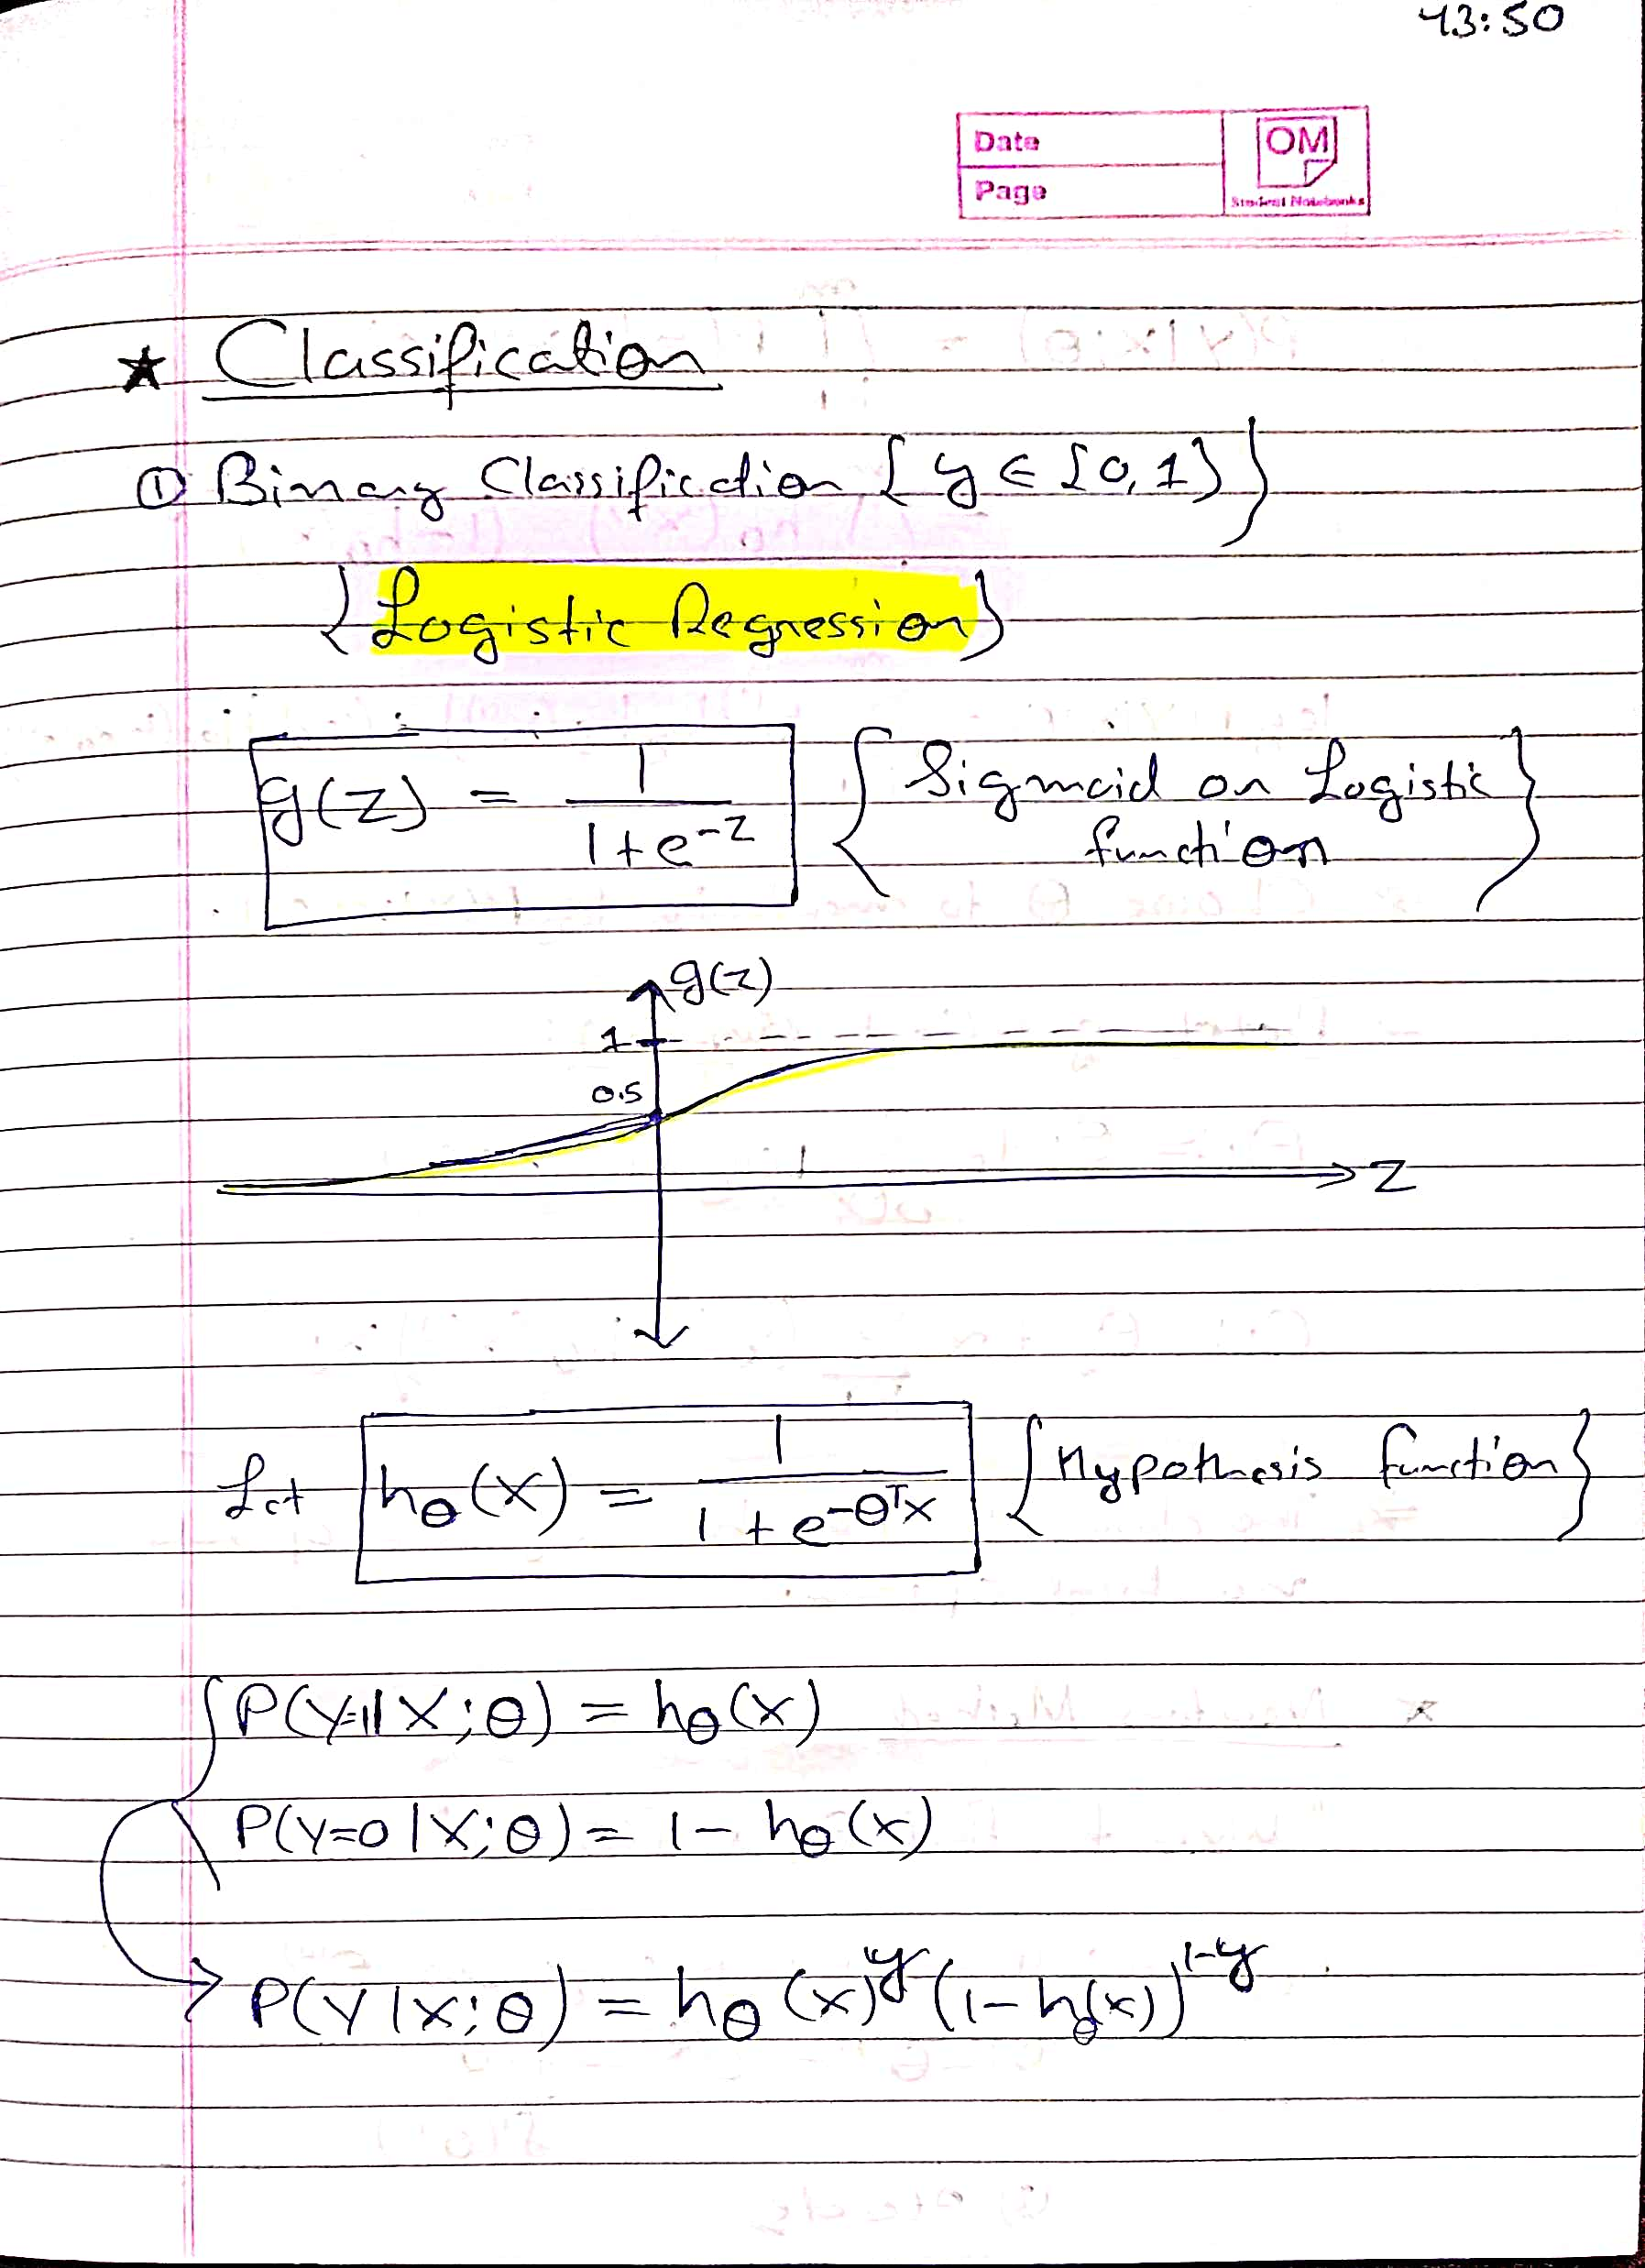 43:50
Date
Page
OM
Student Notebooks
★ Classification
① Binary Classification {y ∈ {0,1}}
{Logistic Regression}
g(z) = 1/(1+e^-z) {Sigmoid or Logistic function}
g(z)
1
0.5
z
Let hθ(x) = 1/(1+e^-θᵀx) {Hypothesis function}
P(Y=1|X;θ) = hθ(x)
P(Y=0|X;θ) = 1 - hθ(x)
→ P(Y|X;θ) = hθ(x)^y (1-hθ(x))^1-y